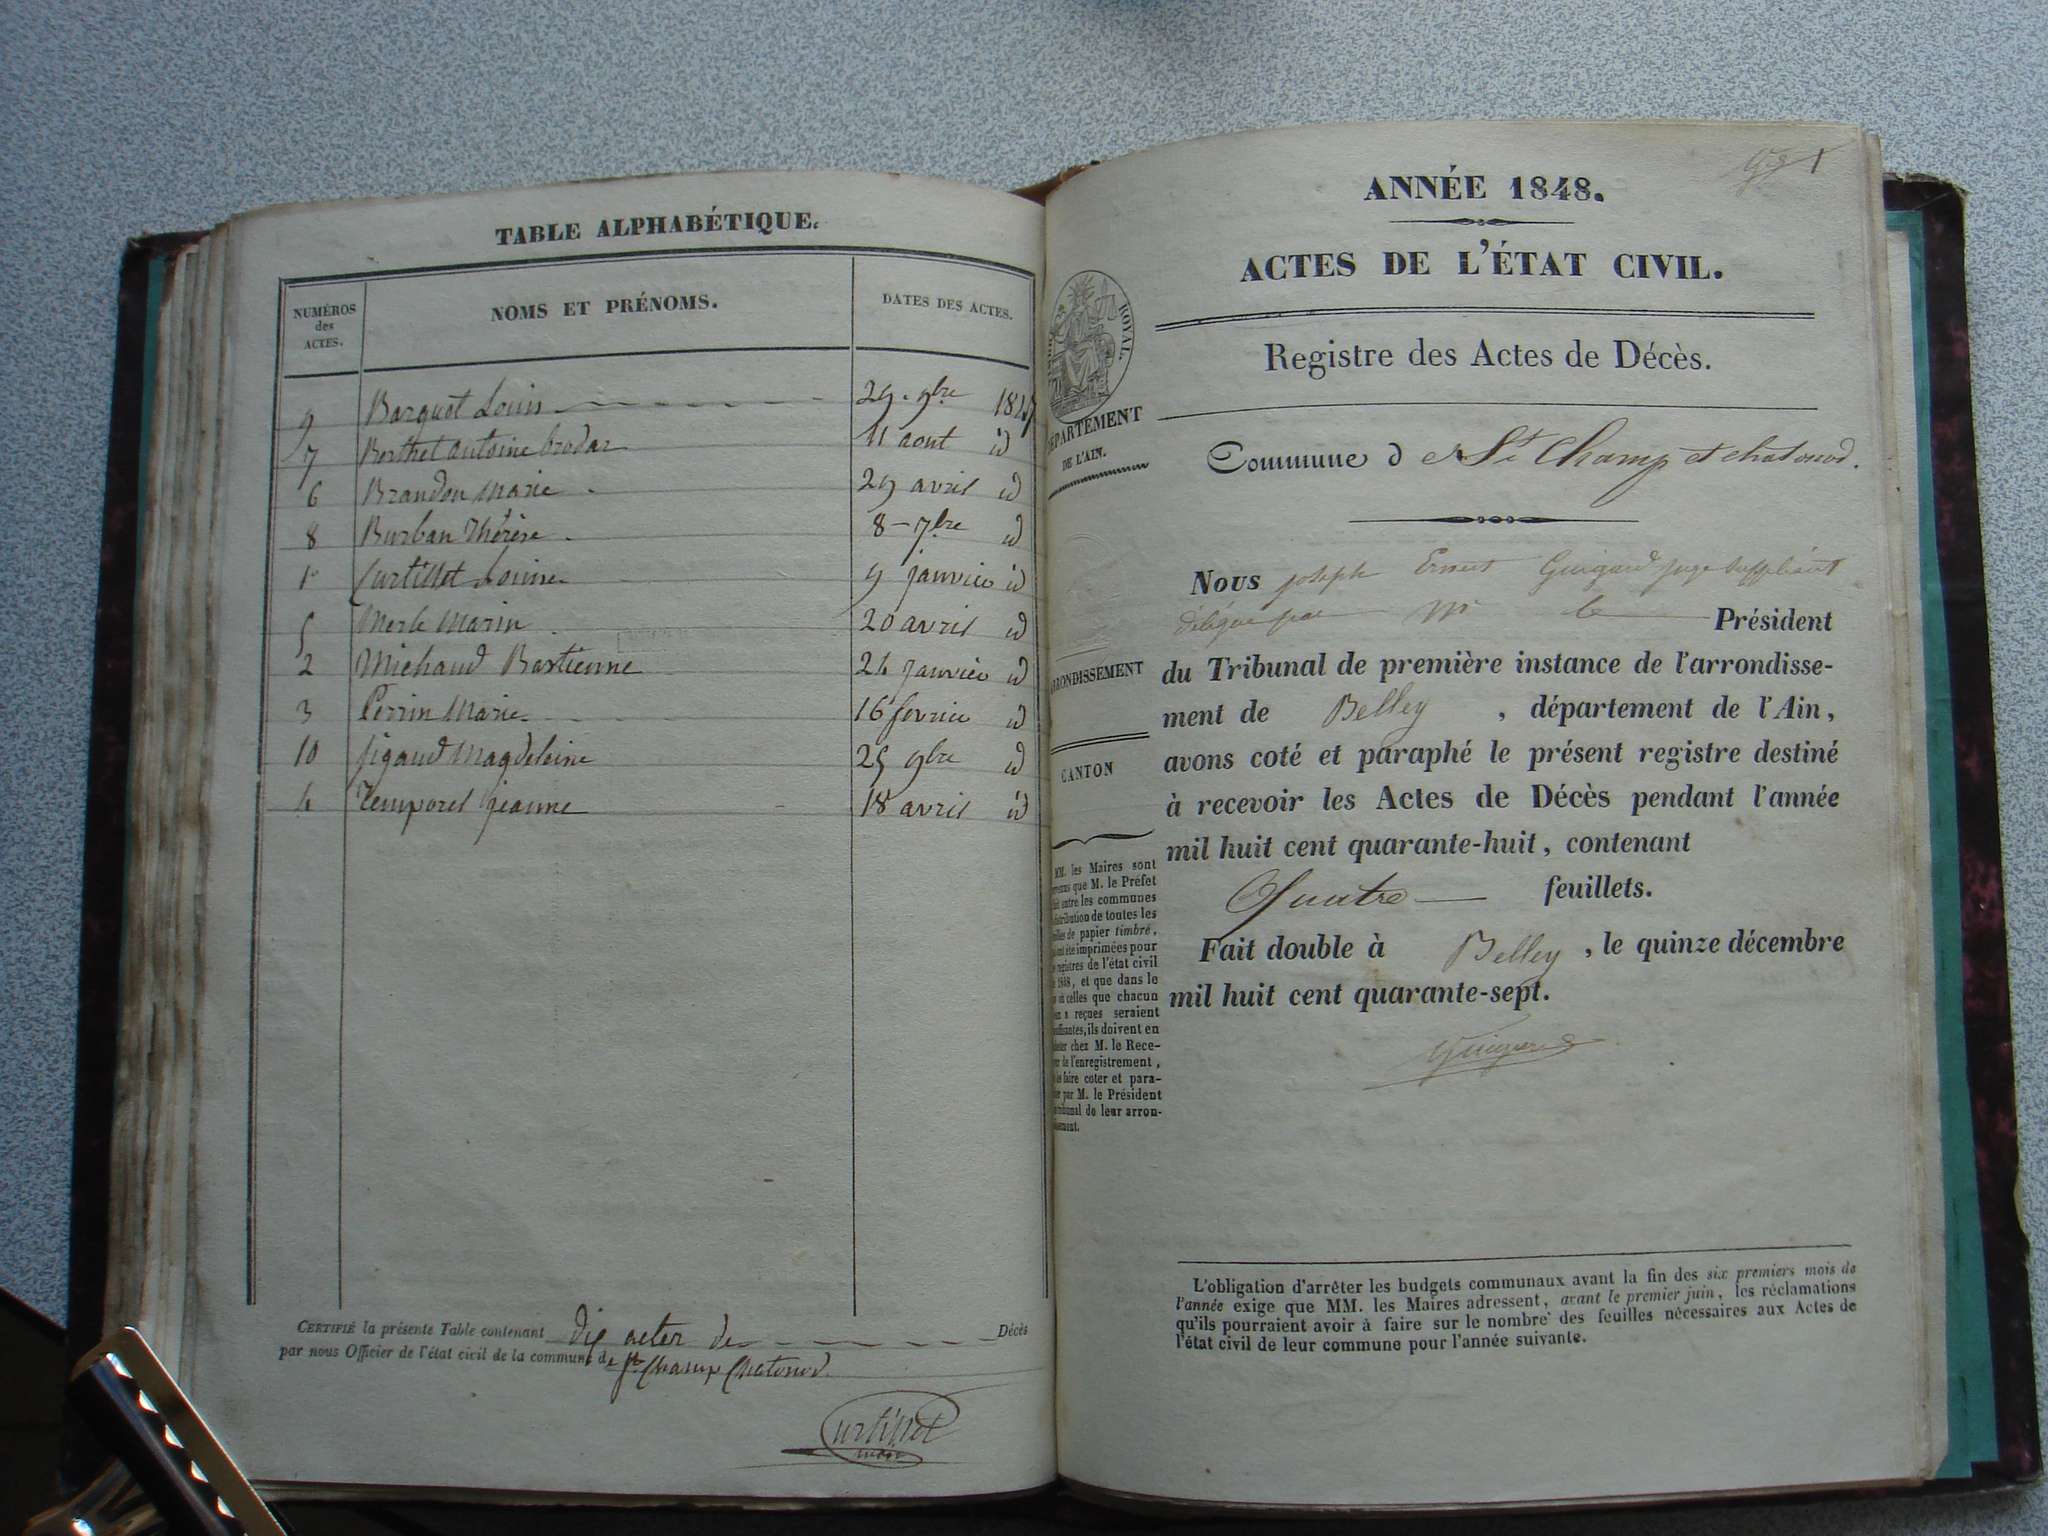 TABLE ALPHABÉTIQUE.
NUMÉROS des ACTES.
NOMS ET PRÉNOMS.
DATES DES ACTES.
9 Barquet Louis 29. 9bre 1847
7 Berthet Antoine brodar 11 aout id
6 Brandon Marie. 29 avril id
8 Burban Thérèse. 8 - 7bre id
1er Curtillet Louise 9 janvier id
5 Merle Marin 20 avril id
2 Michaud Bastienne 24 janvier id
3 Perrin Marie 16 fevrier id
10 Sigaud Magdeleine 25 9bre id
4 Temporel jeanne 18 avril id
CERTIFIÉ la présente Table contenant dix actes de Décès
par nous Officier de l'état civil de la commune de St Champ Chatonod.
Curtillet
maire
1
ANNÉE 1848.
ACTES DE L'ÉTAT CIVIL.
Registre des Actes de Décès.
ROYAL.
DÉPARTEMENT
DE L'AIN.
Commune d e St Champ et chatonod.
Nous joseph Ernest Guigard juge Suppléant
délégué par Mr le Président
du Tribunal de première instance de l'arrondisse-
ment de Belley, département de l'Ain,
avons coté et paraphé le présent registre destiné
à recevoir les Actes de Décès pendant l'année
mil huit cent quarante-huit, contenant
Quatre feuillets.
Fait double à Belley, le quinze décembre
mil huit cent quarante-sept.
Guigard
RRONDISSEMENT
CANTON
MM. les Maires sont
venus que M. le Préfet
fait entre les communes
distribution de toutes les
illes de papier timbré,
ont été imprimées pour
s registres de l'état civil
e 1848, et que dans le
où celles que chacun
en a reçues seraient
uffisantes, ils doivent en
heter chez M. le Rece-
r de l'enregistrement,
les faire coter et para-
her par M. le Président
tribunal de leur arron-
issement.
L'obligation d'arrêter les budgets communaux avant la fin des six premiers mois de
l'année exige que MM. les Maires adressent, avant le premier juin, les réclamations
qu'ils pourraient avoir à faire sur le nombre des feuilles nécessaires aux Actes de
l'état civil de leur commune pour l'année suivante.